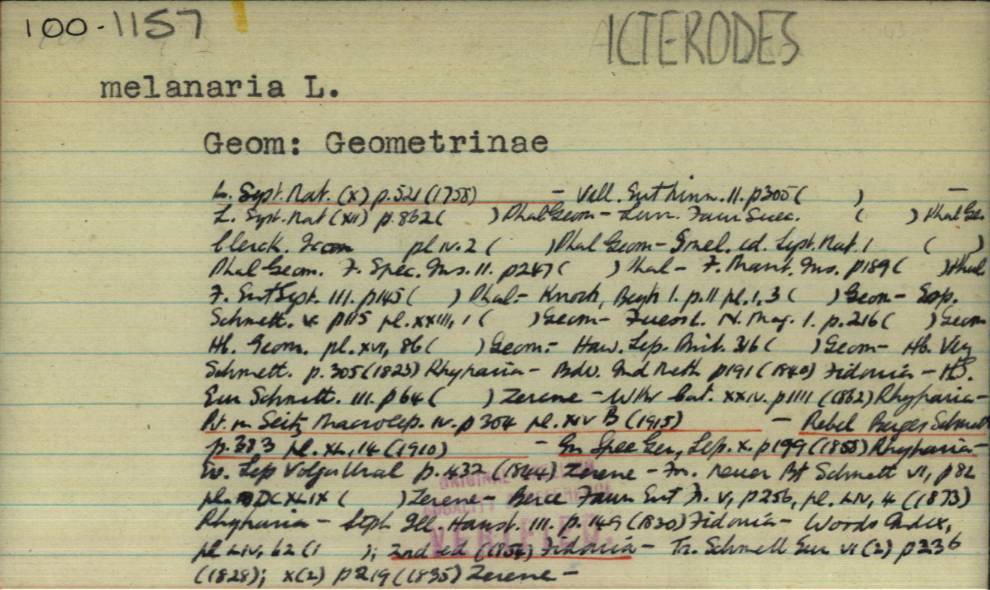 100-1157
ICTERODES
melanaria L.
Geom: Geometrinae
L. Syst. Nat. (x) p.521 (1758) - Vill. Ent Linn. II. p305 ( ) -
L. Syst. Nat (xii) p.862 ( ) Phal Geom - Linn. Faun Suec. ( ) Phal Geo
Clerck. Icon pl iv. 2 ( ) Phal Geom - Gmel. ed. Syst. Nat. 1 ( )
Phal Geom. F. Spec. Ins. II. p247 ( ) Phal - F. Mant. Ins. p189 ( ) Phal
F. Ent Syst. III. p145 ( ) Phal - Knoch, Beytr I. p.11 pl. 1, 3 ( ) Geom - Esp.
Schmett. v. p115 pl. xxiii, 1 ( ) Geom - Fuessl. N. Mag. I. p.216 ( ) Geom
Hb. Geom. pl. xvi, 86 ( ) Geom. - Haw. Lep. Brit. 316 ( ) Geom - Hb. Verz
Schmett. p.305 (1823) Rhyparia - Bdv. Ind Meth p191 (1840) Fidonia - HS.
Eur Schmett. III. p64 ( ) Zerene - Wkr Cat. xxiv. p1111 (1862) Rhyparia -
Pt. in Seitz Macrolep. iv. p304 pl. xiv B (1915) - Rebel Berges Schmett
p.383 pl. xL, 14 (1910) - Gn Spec Gen, Lep. x. p199 (1858) Rhyparia -
Ev. Lep Volga Ural p.432 (1844) Zerene - Fr. Neuer Bt Schmett vi, p82
pl. DXLIX ( ) Zerene - Berce Faun Ent Fr. v, p256, pl. LIV, 4 (1873)
Rhyparia - Steph Ill. Haust. III. p.149 (1830) Fidonia - Woods Index,
pl LIV, 62 (1 ); 2nd ed (1854) Fidonia - Tr. Schmett Eur vi (2) p236
(1828); x(2) p219 (1835) Zerene -
ORIGINAL
VERIFIED.